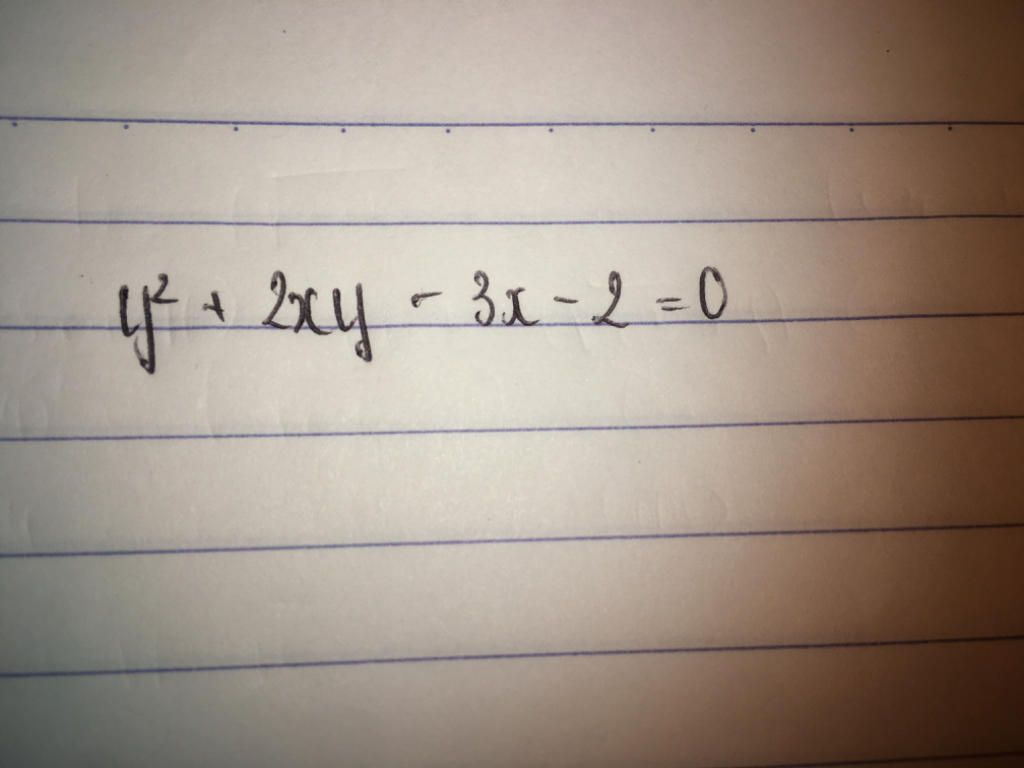 y² + 2xy - 3x - 2 = 0